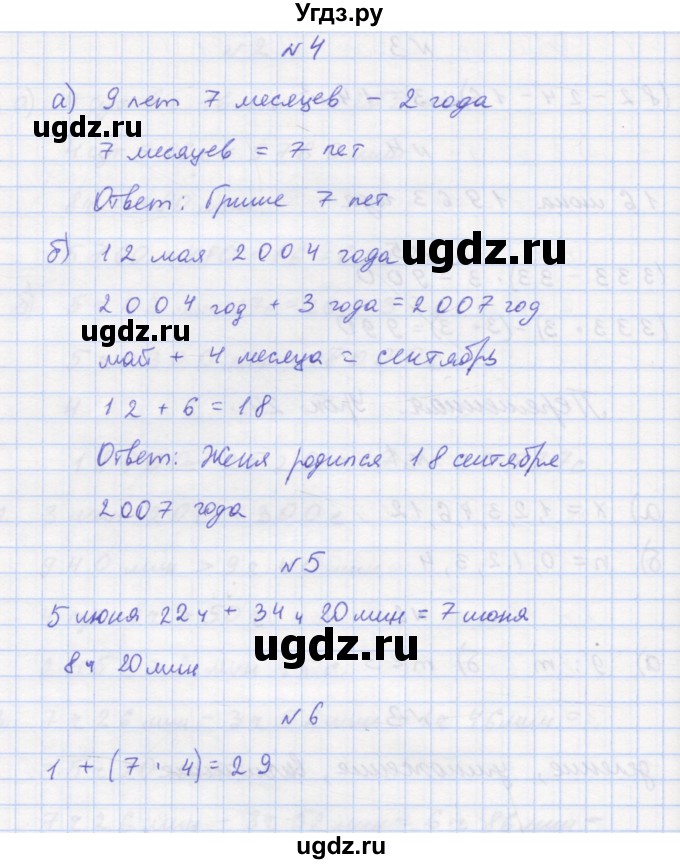 Угдз.ру
№4
а) 9 лет 7 месяцев - 2 года
7 месяцев = 7 лет
Ответ: Грише 7 лет
б) 12 мая 2004 года
2004 год + 3 года = 2007 год
май + 4 месяца = сентябрь
12 + 6 = 18
Ответ: Женя родился 18 сентября
2007 года
№5
5 июня 22 ч + 34 ч 20 мин = 7 июня
8 ч 20 мин
№6
1 + (7 · 4) = 29
ugdz.ru
ugdz.ru
ugdz.ru
ugdz.ru
ugdz.ru
ugdz.ru